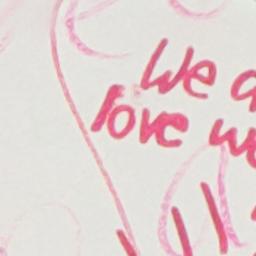 We a
love we